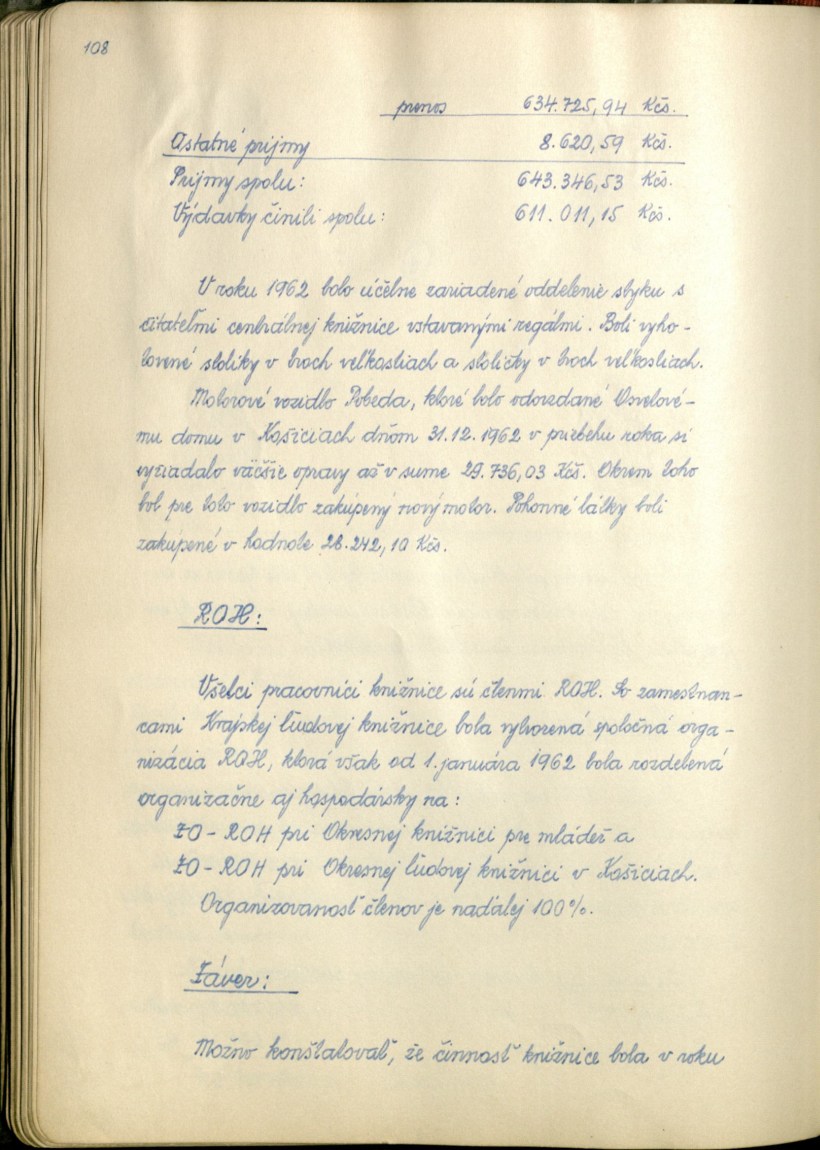 108
prenos 634.725,94 Kčs.
Ostatné príjmy 8.620,59 Kčs.
Príjmy spolu: 643.346,53 Kčs.
Výdavky činili spolu: 611.011,15 Kčs.
V roku 1962 bolo účelne zariadené oddelenie styku s
čitateľmi centrálnej knižnice vstavanými regálmi. Boli vyho-
tovené stolíky v troch veľkostiach a stoličky v troch veľkostiach.
Motorové vozidlo Pobeda, ktoré bolo odovzdané Osvetové-
mu domu v Košiciach dňom 31.12.1962 v priebehu roka si
vyžiadalo väčšie opravy až v sume 29.736,03 Kčs. Okrem toho
bol pre toto vozidlo zakúpený nový motor. Pohonné látky boli
zakúpené v hodnote 28.242,10 Kčs.
ROH:
Všetci pracovníci knižnice sú členmi ROH. So zamestnan-
cami Krajskej ľudovej knižnice bola vytvorená spoločná orga-
nizácia ROH, ktorá však od 1. januára 1962 bola rozdelená
organizačne aj hospodársky na:
ZO-ROH pri Okresnej knižnici pre mládež a
ZO-ROH pri Okresnej ľudovej knižnici v Košiciach.
Organizovanosť členov je naďalej 100%.
Záver:
Možno konštatovať, že činnosť knižnice bola v roku